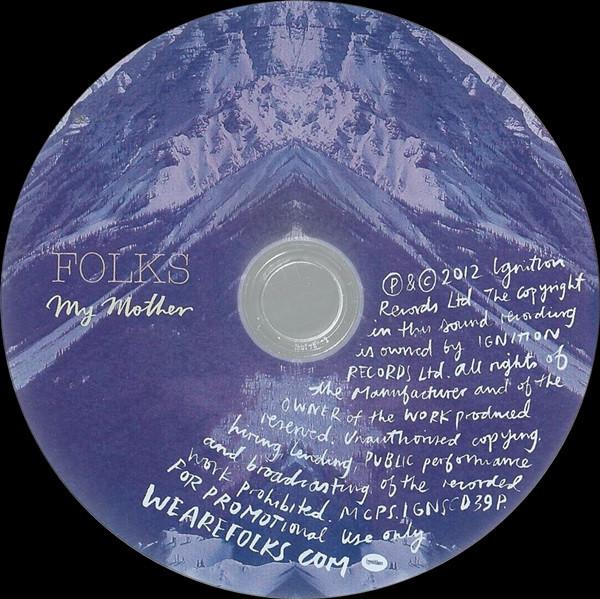 FOLKS
My Mother
℗ & © 2012 Ignition
Records Ltd. The copyright
in this sound recording
is owned by IGNITION
RECORDS Ltd. all rights of
the Manufacturer and of the
OWNER of the WORK produced
reserved. Unauthorised copying.
hiring lending, PUBLIC performance
and broadcasting of the recorded
work prohibited. MCPS. IGNSCD39P.
FOR PROMOTIONAL USE only
WEAREFOLKS.COM